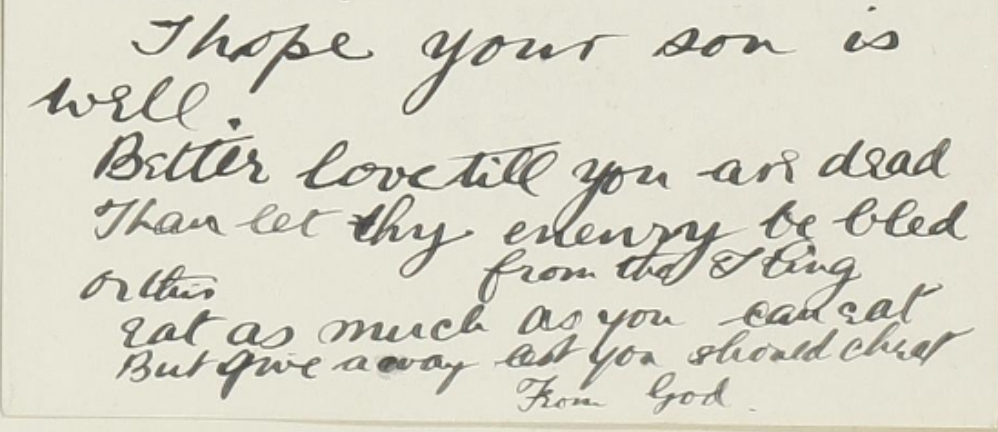 I hope your son is
well.
Better love till you are dead
Than let thy enemy be bled
from the I Ting
Or this
Eat as much as you can eat
But give away lest you should cheat
From God.